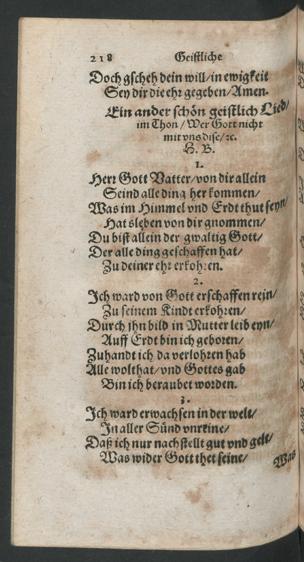 218 Geistliche
Doch gscheh dein will/in ewigkeit
Sey dir die ehr gegeben/Amen.
Ein ander schön geistlich Lied/
im Thon/Wer Gott nicht
mit vns dise/ꝛc.
H. B.
1.
Herr Gott Vatter/von dir allein
Seind alle ding her kommen/
Was im Himmel vnd Erdt thut seyn/
Hat sleben von dir gnommen/
Du bist allein der gwaltig Gott/
Der alle ding geschaffen hat/
Zu deiner ehr erkohren.
2.
Ich ward von Gott erschaffen rein/
Zu seinem Kindt erkohren/
Durch ihn bild in Mutter leib eyn/
Auff Erdt bin ich geboren/
Zuhandt ich da verlohren hab
Alle wolthat/vnd Gottes gab
Bin ich beraubet worden.
3.
Ich ward erwachsen in der welt/
In aller Sünd vnreine/
Daß ich nur nach stellt gut vnd gelt/
Was wider Gott thet seine/
Was